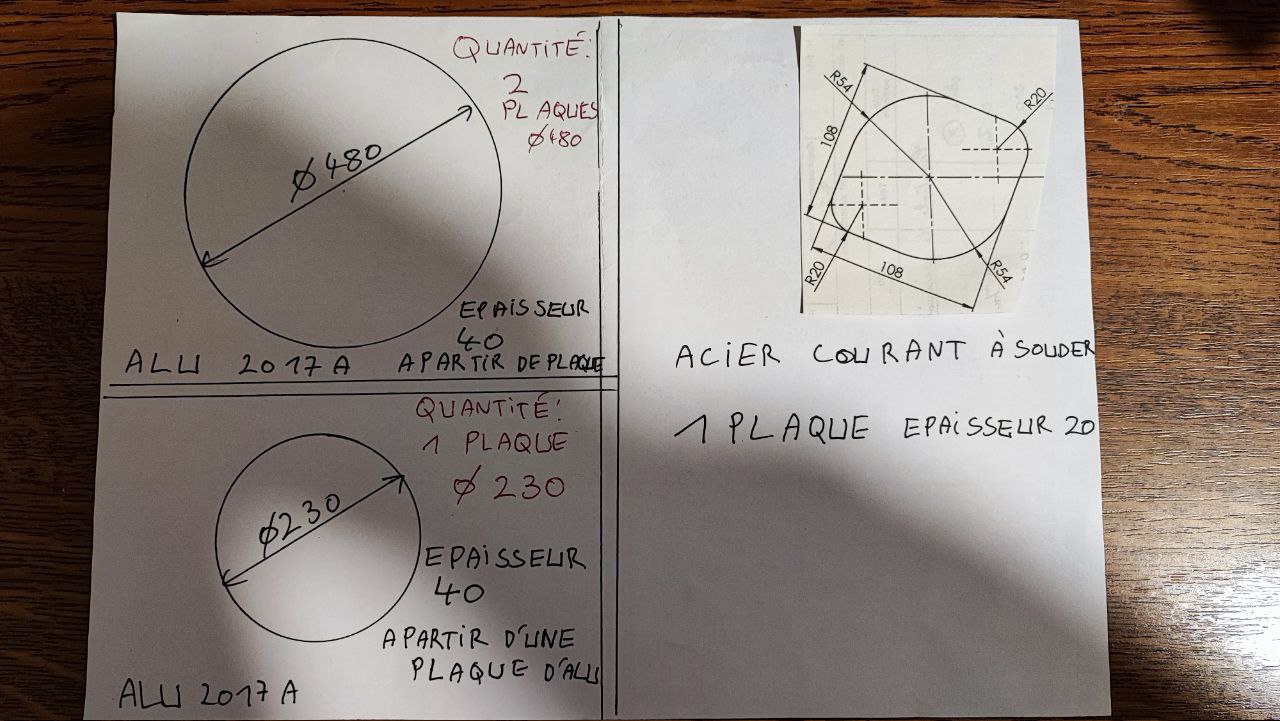 QUANTITÉ:
2
PLAQUES
Ø480
Ø 480
EPAISSEUR
40
ALU 2017A APARTIR DE PLAQUE
QUANTITÉ:
1 PLAQUE
Ø 230
Ø230
EPAISSEUR
40
APARTIR D'UNE
PLAQUE D'ALU
ALU 2017A
R54
R20
108
R20
108
R54
ACIER COURANT À SOUDER
1 PLAQUE EPAISSEUR 20